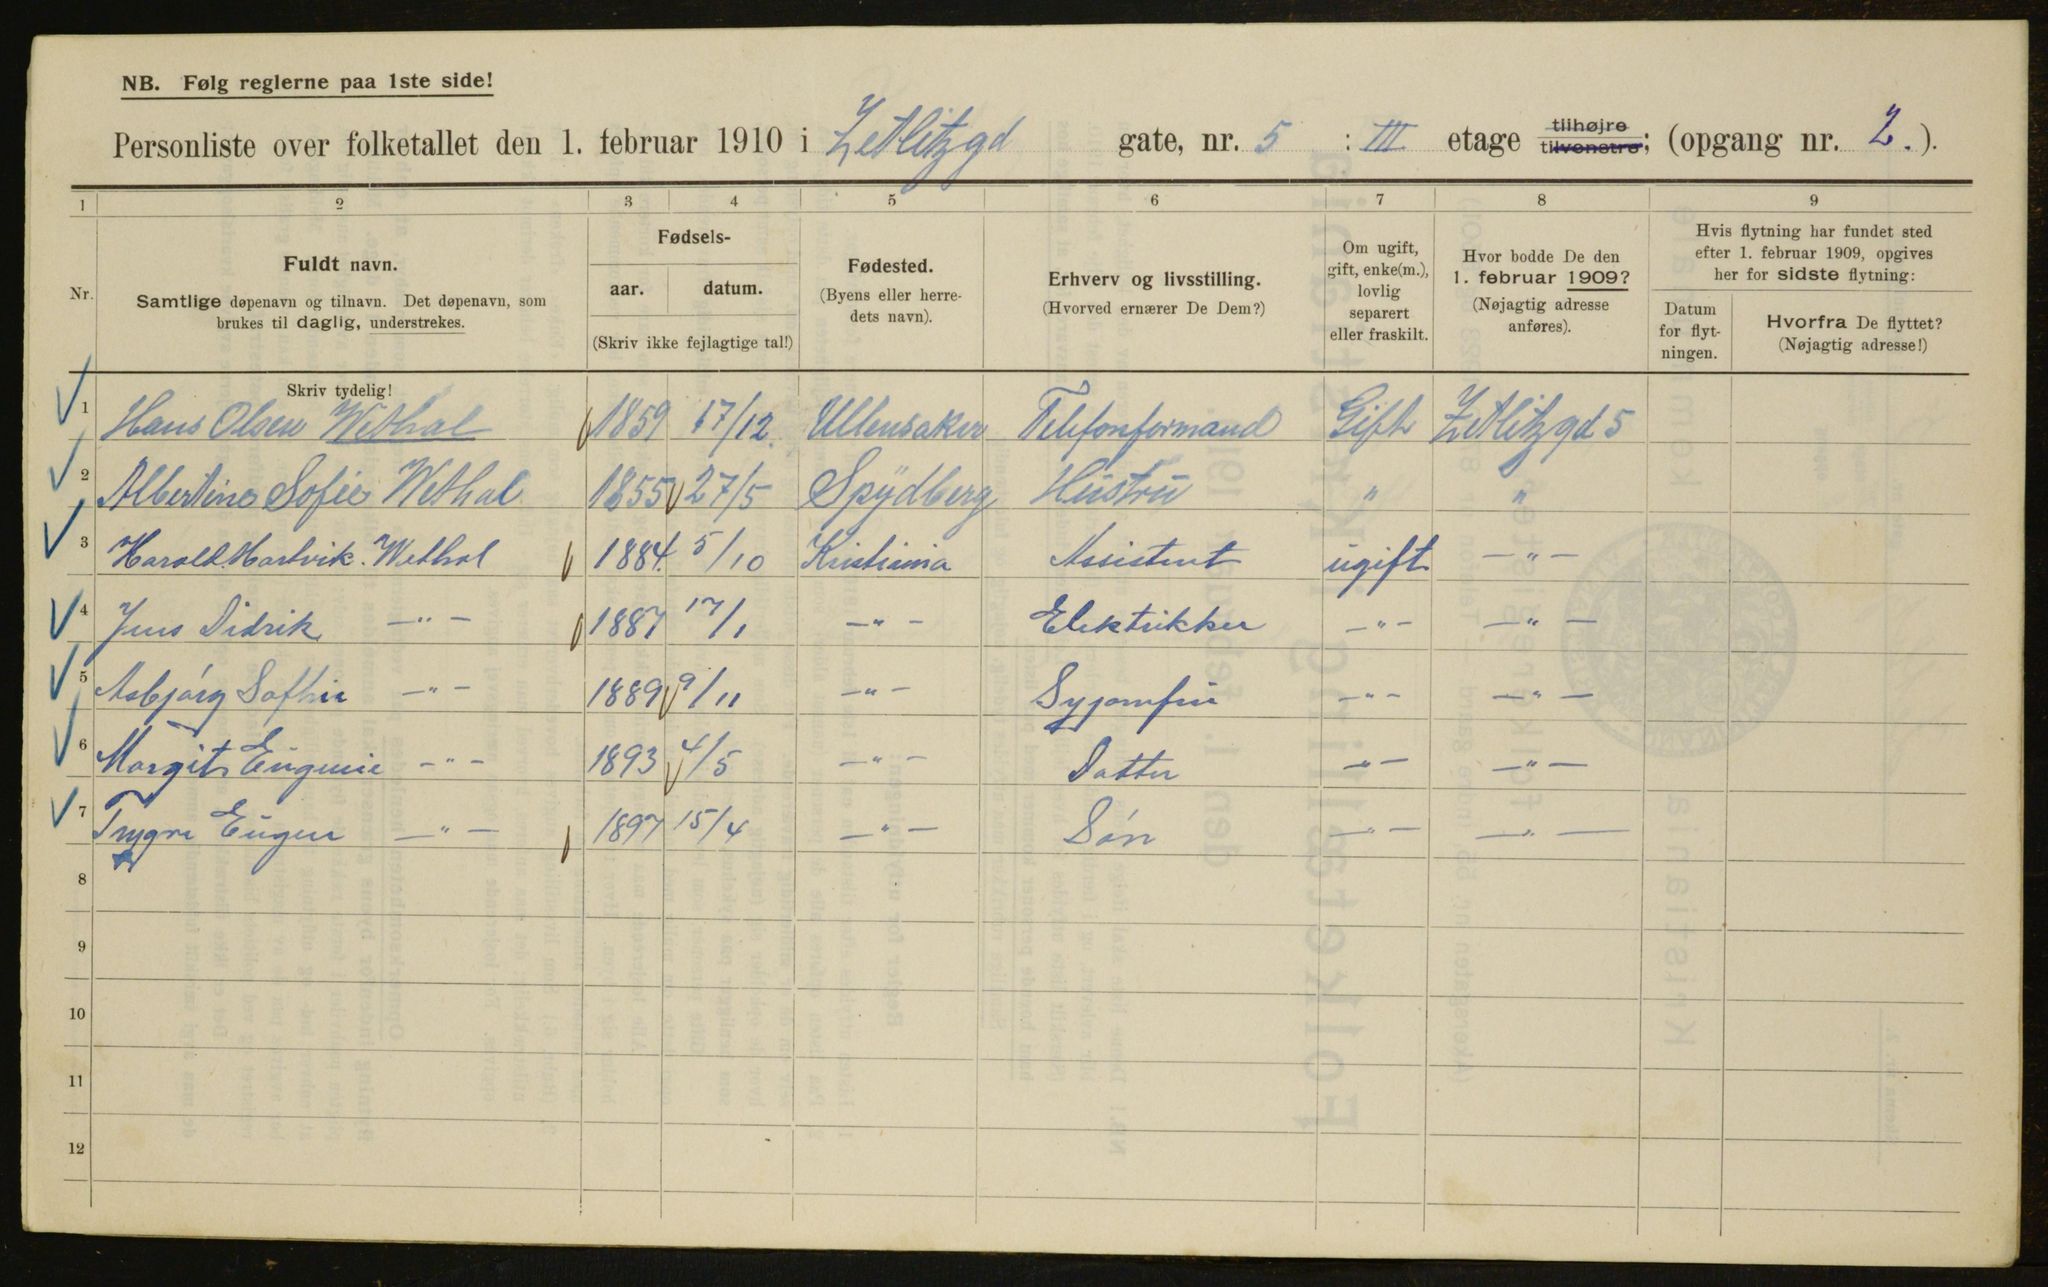 NB. Følg reglerne paa 1ste side!
Personliste over folketallet den 1. februar 1910 i Zetlitzgd gate, nr. 5 : III etage tilhøjre tilvenstre; (opgang nr. 2.).
1 2 3 4 5 6 7 8 9
Nr. Fuldt navn. Samtlige døpenavn og tilnavn. Det døpenavn, som brukes til daglig, understrekes.
Skriv tydelig!
Fødsels-
aar. datum.
(Skriv ikke fejlagtige tal!)
Fødested. (Byens eller herredets navn).
Erhverv og livsstilling. (Hvorved ernærer De Dem?)
Om ugift, gift, enke(m.), lovlig separert eller fraskilt.
Hvor bodde De den 1. februar 1909? (Nøjagtig adresse anføres).
Hvis flytning har fundet sted efter 1. februar 1909, opgives her for sidste flytning:
Datum for flytningen.
Hvorfra De flyttet? (Nøjagtig adresse!)
1 Hans Olsen Wethal 1859 17/12 Ullensaker Telefonformand Gift Zetlitzgd 5
2 Albertine Sofie Wethal 1855 27/5 Spydberg Hustru " "
3 Harald Hartvik Wethal 1884 5/10 Kristiania Assistent ugift — " —
4 Jens Didrik — " — 1887 17/1 — " — Elektrikker — " — — " —
5 Asbjørg Sofhie — " — 1889 9/11 — " — Syjomfru — " — — " —
6 Margit Eugenie — " — 1893 4/5 — " — Datter — " — — " —
7 Trygve Eugen — " — 1897 15/4 — " — Søn — " — — " —
8
9
10
11
12